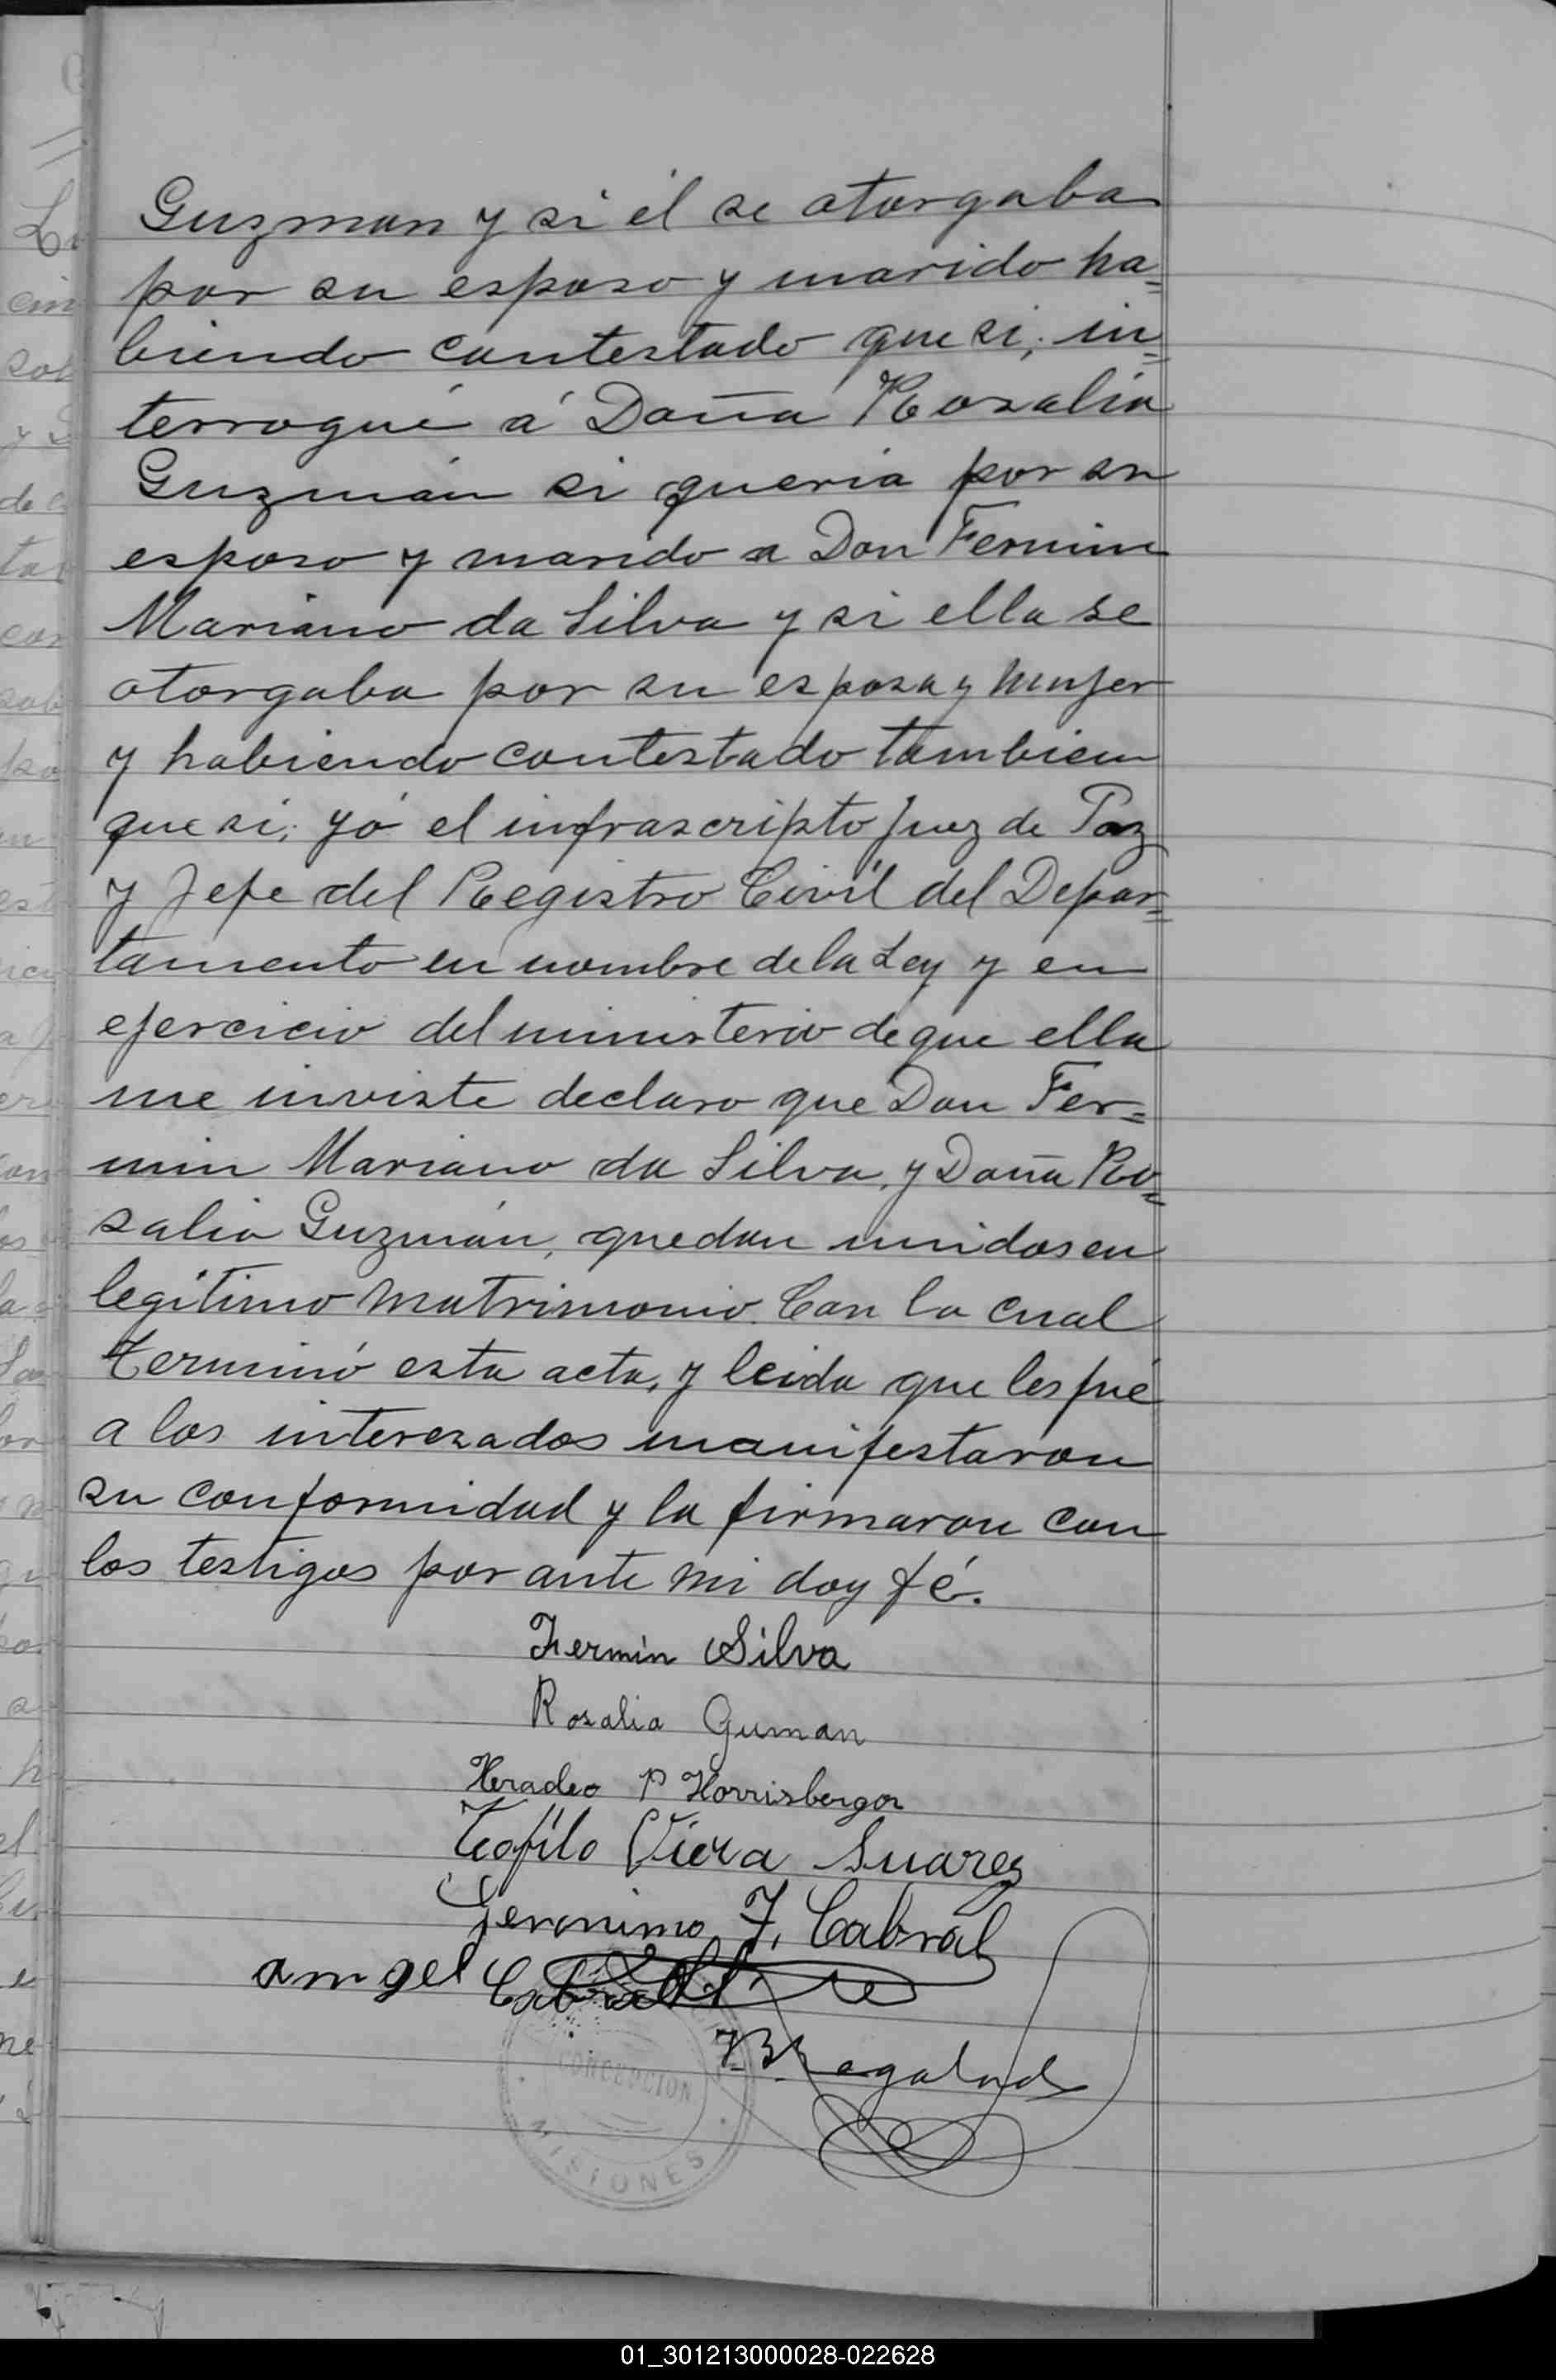 Guzman y si él se otorgaba
por su esposo y marido ha=
biendo contestado que si; in=
terrogué á Doña Rosalia
Guzmán si queria por su
esposo y marido a Don Fermin
Mariano da Silva y si ella se
otorgaba por su esposa y mujer
y habiendo contestado tambien
que si; yó el infrascripto Juez de Paz
y Jefe del Registro Civil del Depar=
tamento en nombre de la Ley y en
ejercicio del ministerio de que ella
me inviste declaro que Don Fer=
min Mariano da Silva, y Doña Ro=
salia Guzmán, quedan unidos en
legítimo matrimonio. Con lo cual
terminó esta acta, y leida que les fué
a los interesados manifestaron
su conformidad y la firmaron con
los testigos por ante mi doy fé.
Fermin Silva
Rosalia Guman
Heradeo P Horrisberger
Teofilo Viera Suarez
Geronimo F. Cabral
angel Cabral
CONCEPCION
MISIONES
01_301213000028-022628